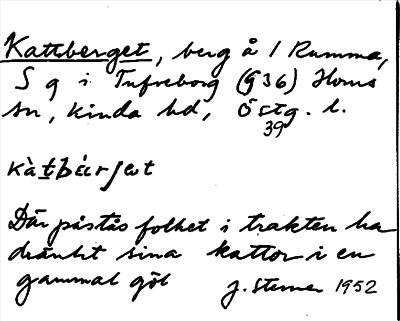 Kattberget, berg å 1 Rumma,
S g i Tufreborg (§36) Horns
sn, Kinda hd, Östg. l.
39
kàtbárjet
Där påstås folket i trakten ha
dränkt sina kattor i en
gammal göl J. Sterner 1952